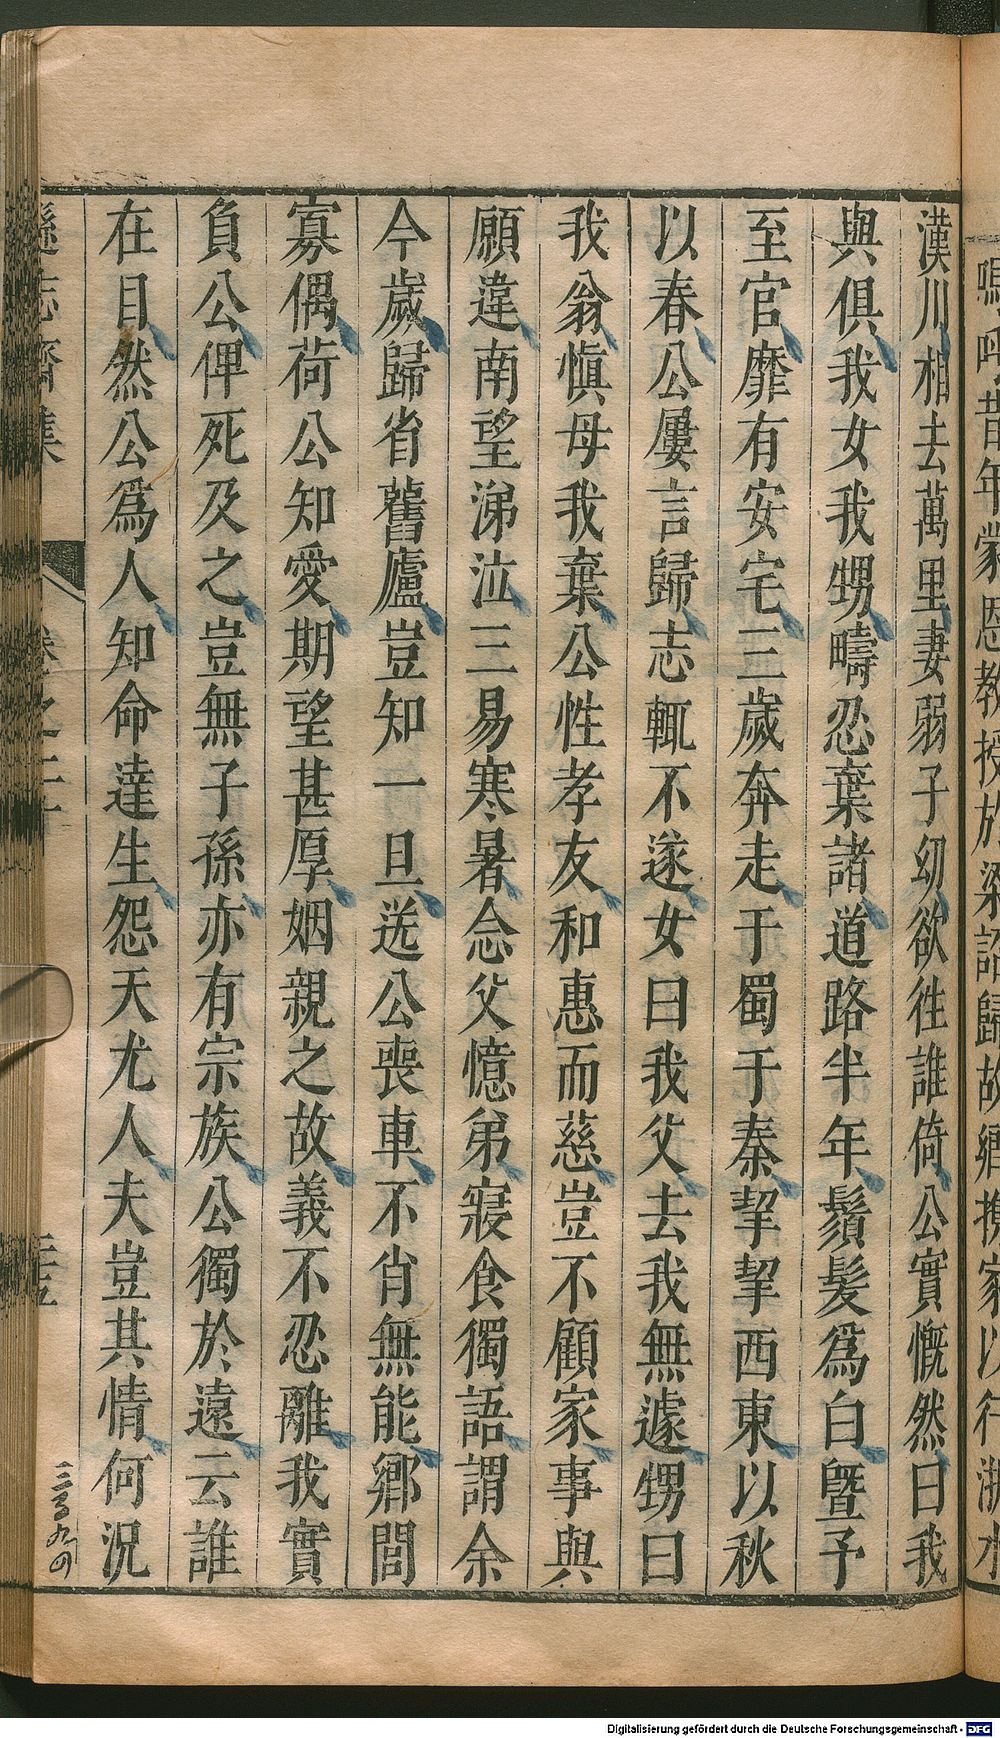 嗚呼昔年蒙恩教授於梁詔歸故鄉携家以行浙水
漢川相去萬里妻弱子幼欲徃誰倚公實慨然曰我
與俱我女我甥疇忍葉諸道路半年鬚髮爲白曁予
至官靡有安宅三歲奔走于蜀于秦挈挈西東以秋
以春公屢言歸志輒不遂女曰我父去我無遽甥曰
我翁愼母我棄公性孝友和惠而慈豈不顧家事與
願違南望涕泣三易寒暑念父憶弟寢食獨語謂余
今歲歸省舊廬豈知一旦送公喪車不肖無能鄉閭
寡偶荷公知愛期望甚厚姻親之故義不忍離我實
負公俾死及之豈無子孫亦有宗族公獨於遠云誰
在目然公爲人知命達生怨天尤人夫豈其情何況
遜志齋集 卷之二十
Digitalisierung gefördert durch die Deutsche Forschungsgemeinschaft - DFG